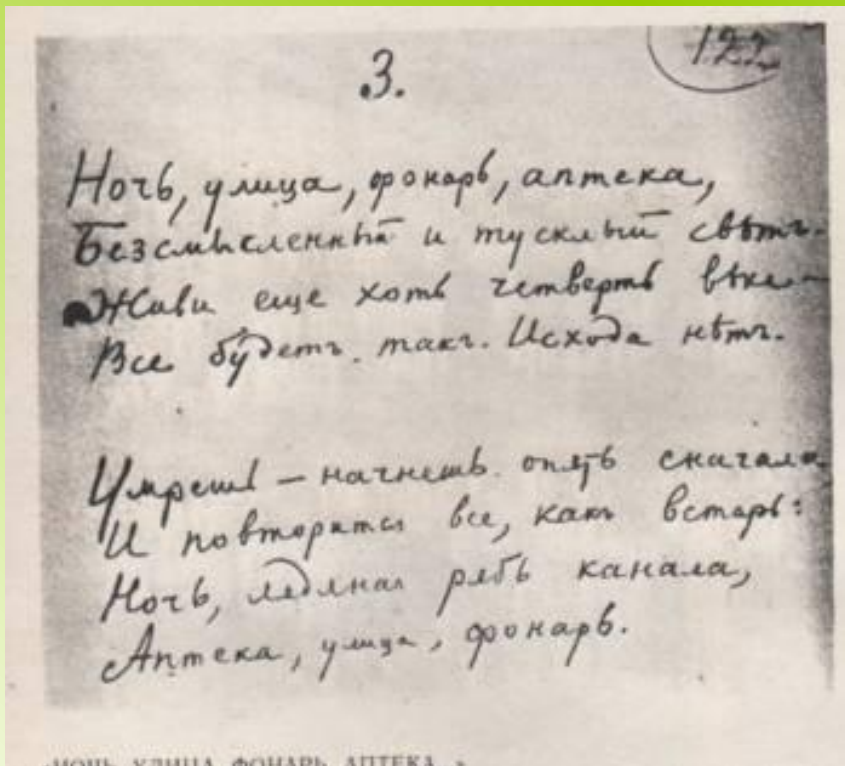 3.
122
Ночь, улица, фонарь, аптека,
Безсмысленный и тусклый свѣтъ.
Живи еще хоть четверть вѣка –
Все будетъ такъ. Исхода нѣтъ.
Умрешь – начнешь опять сначала
И повторится все, какъ встарь:
Ночь, ледяная рябь канала,
Аптека, улица, фонарь.
«НОЧЬ УЛИЦА ФОНАРЬ АПТЕКА »